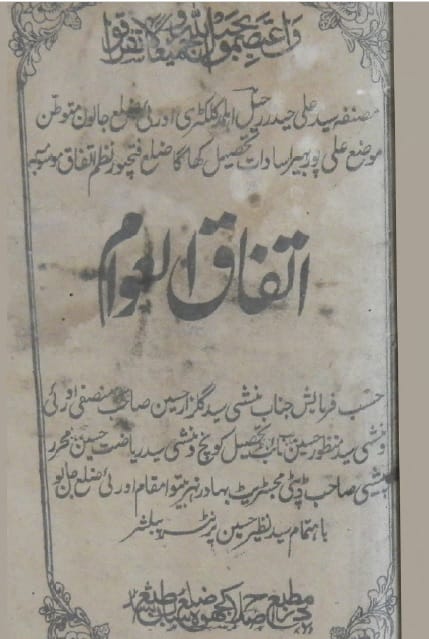 واعتصموا بحبل الله جمیعا ولا تفرقوا
مصنفہ سید علی حیدر رحیل اہلمد کلکٹری اورئی ضلع جالون متوطن
موضع علی پور بہیرا سادات تحصیل کھاگا ضلع فتحپور نظم اتفاق موسوبہ
اتفاق العوام
حسب فرمایش جناب منشی سید گلزار حسین صاحب منصفی اورئی
و منشی سید منظور حسین نائب تحصیل کونچ و منشی سید ریاضت حسین محرر
پیشی صاحب ڈپٹی مجسٹریٹ بہادر نہر بیتوا مقام اورئی ضلع جالون
باہتمام سید نظیر حسین پرنٹر پبلشر
مطبع کھجوہ ضلع